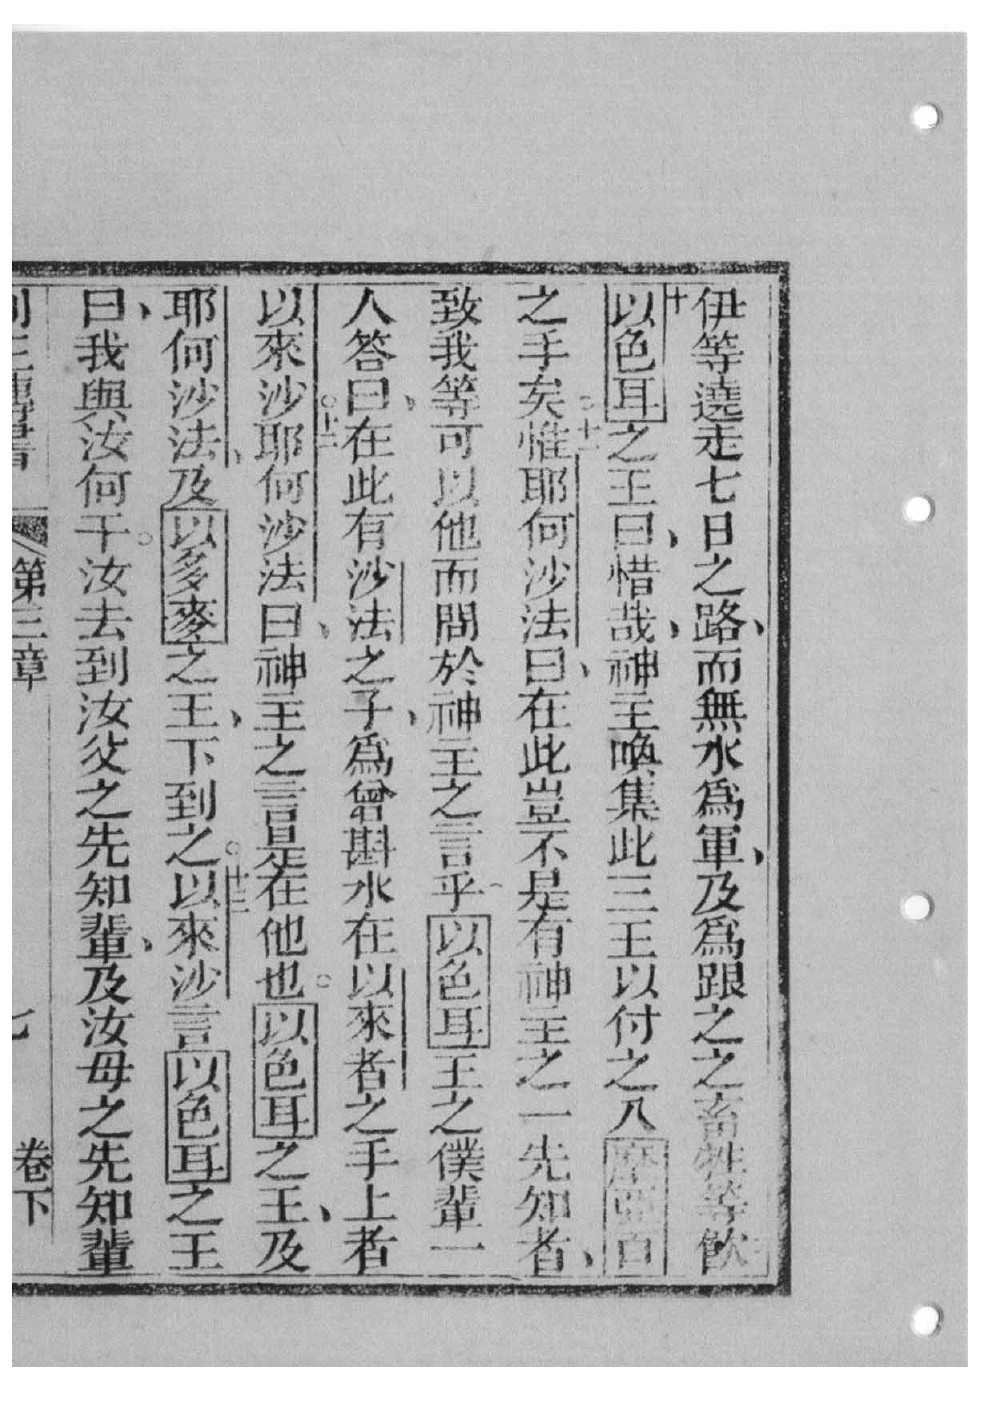 伊等遶走七日之路、而無水爲軍、及爲跟之之畜牲等飲
十以色耳之王曰、惜哉、神主喚集此三王以付之入摩亞百
之手矣。十一惟耶何沙法曰、在此豈不是有神主之一先知者、
致我等可以他而問於神主之言乎以色耳王之僕輩一
人答曰、在此有沙法之子、爲曾斟水在以來者之手上者
以來沙。十二耶何沙法曰、神主之言是在他也。以色耳之王、及
耶何沙法、及以多麥之王、下到之。十三以來沙言以色耳之王
曰、我與汝何干。汝去到汝父之先知輩、及汝母之先知輩
列王傳書 第三章 七 卷下